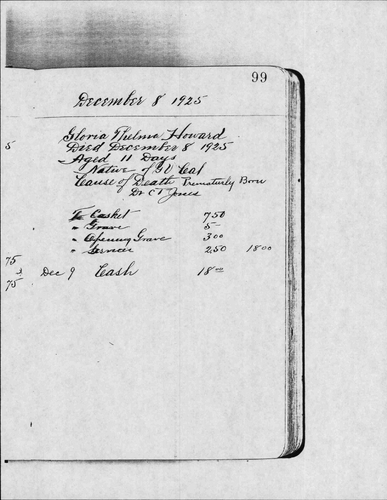 99
December 8 1925
Gloria Thelma Howard
5
Died December 8 1925
Aged 11 Days
Native of G V Cal
Cause of Death Prematurly Born
Dr C T Jones
To Casket 7 50
" Grave 5 -
" Opening Grave 3 00
" Service 2 50 18 00
75
Dec 9 Cash 18 00
75